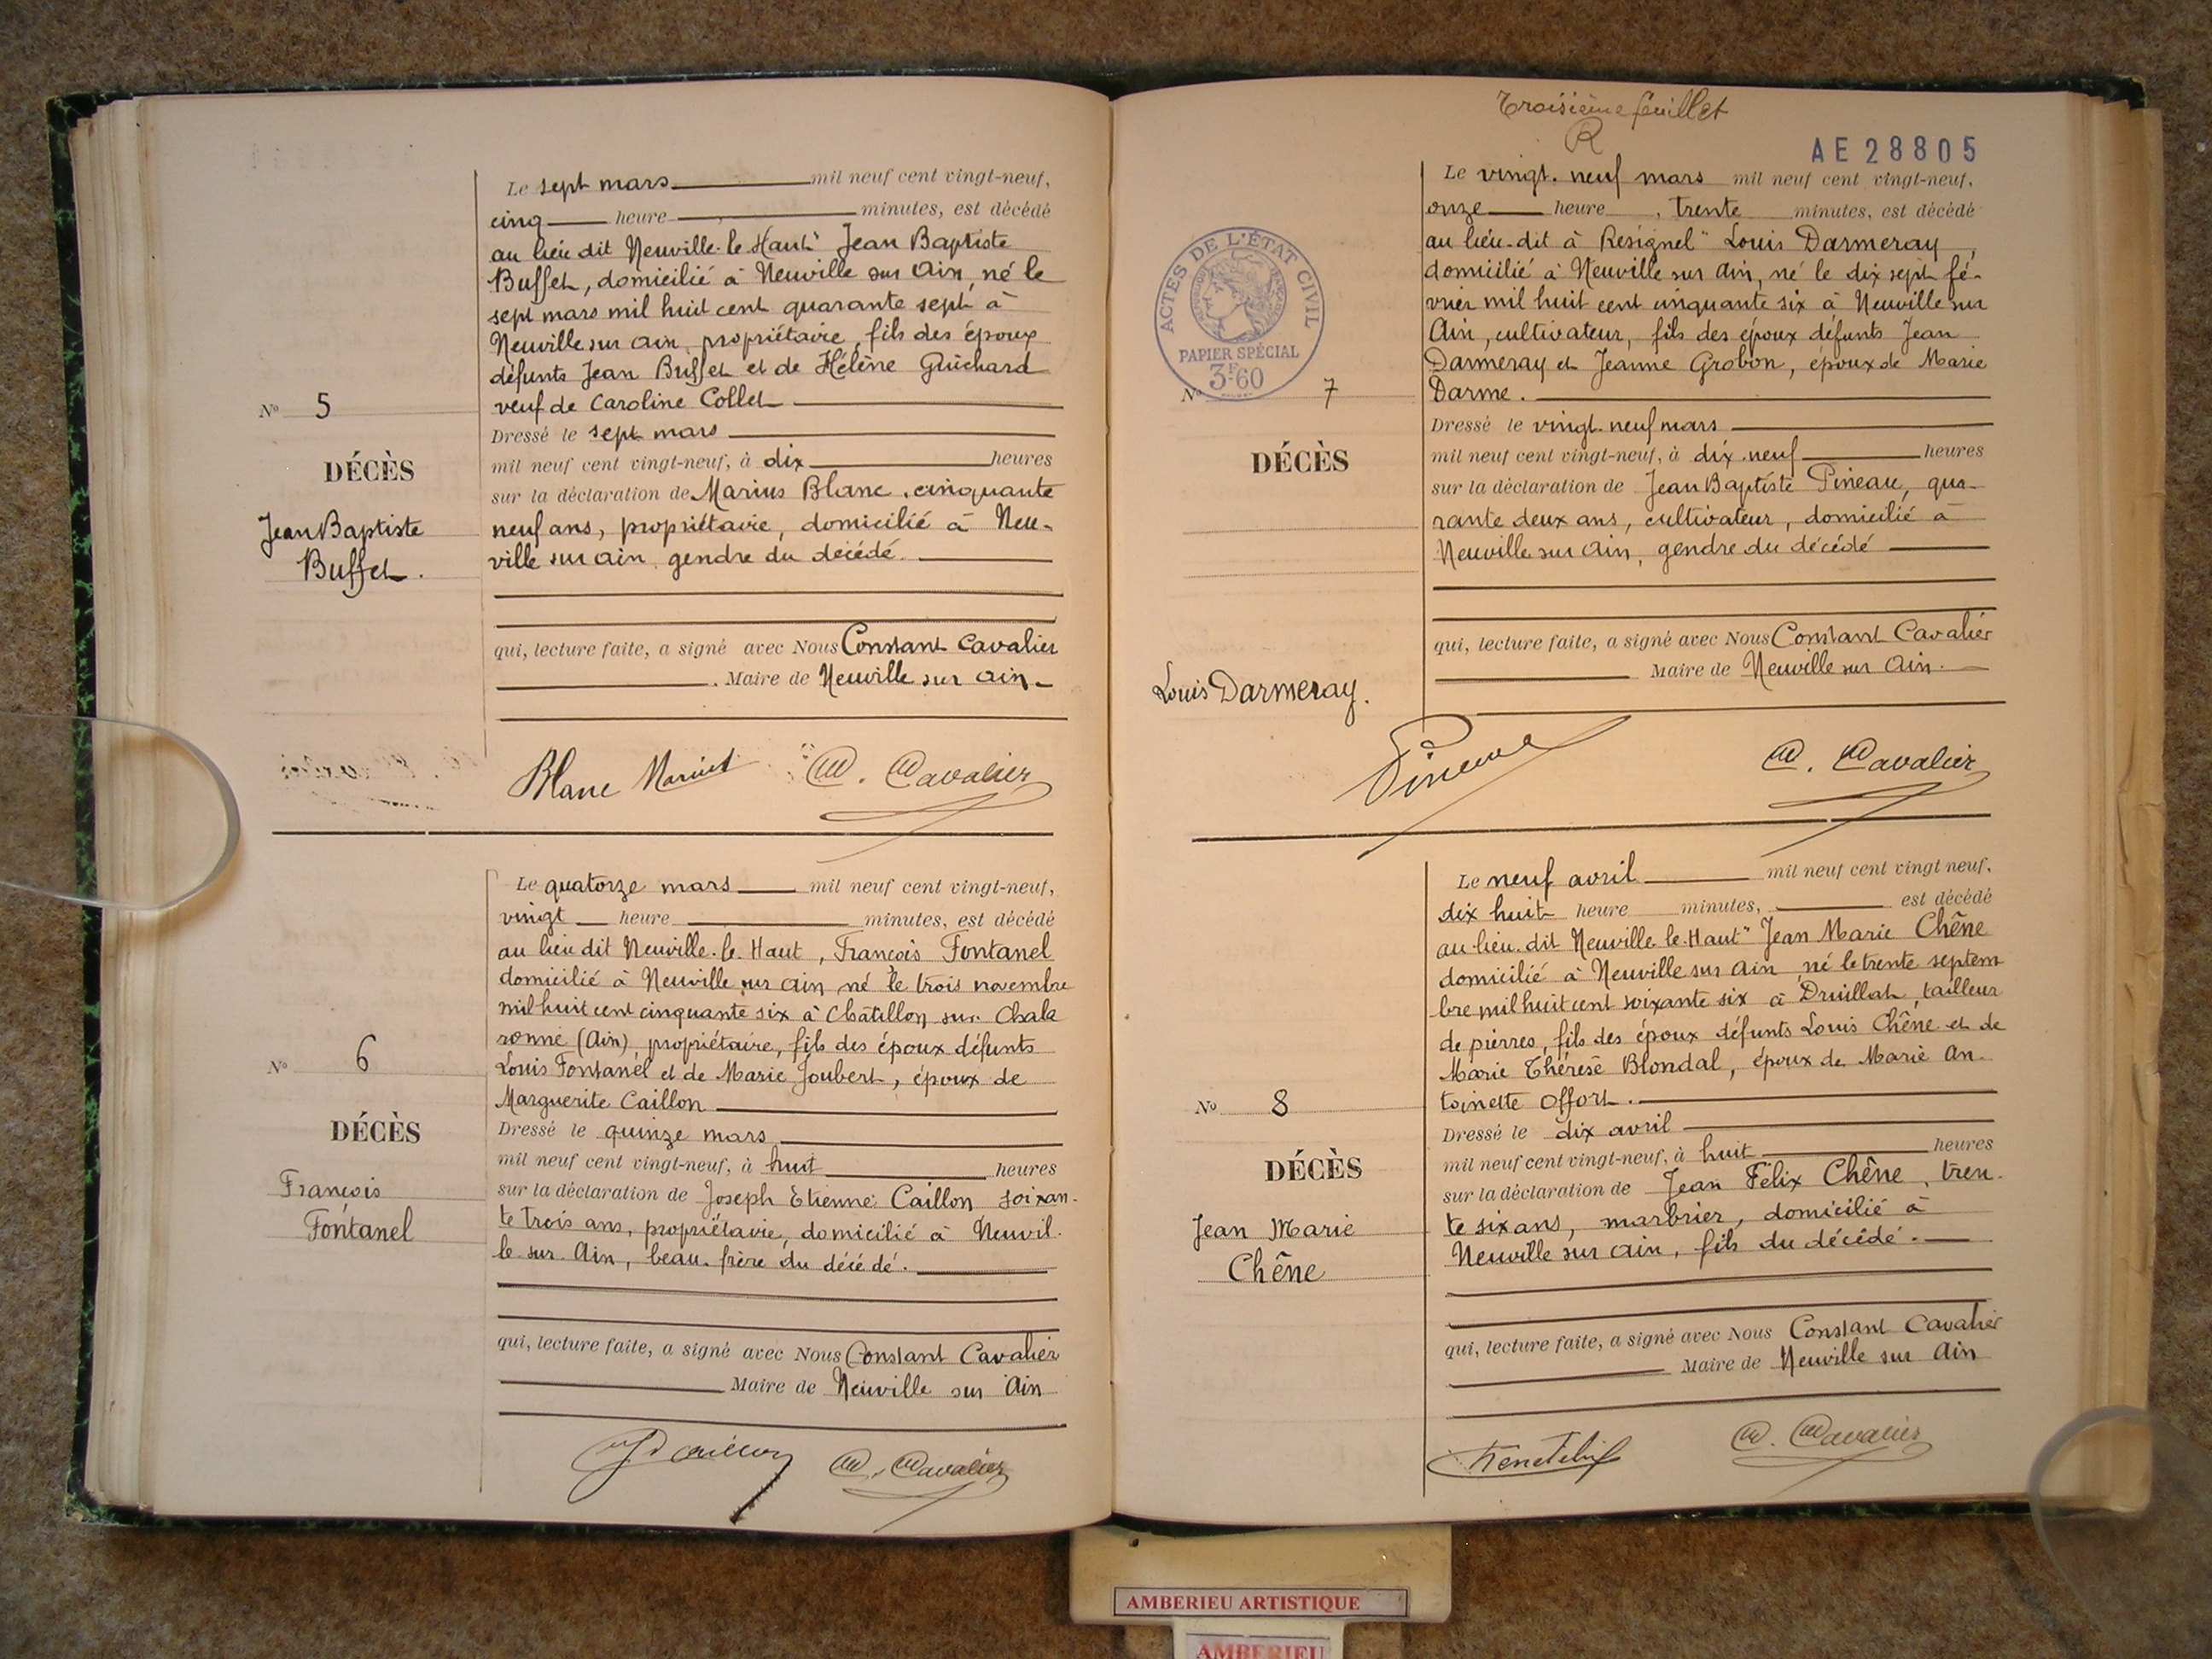 Le sept mars mil neuf cent vingt-neuf,
cinq heure minutes, est décédé
au lieu dit Neuville-le-Haut" Jean Baptiste
Buffet, domicilié à Neuville sur Ain, né le
sept mars mil huit cent quarante sept à
Neuville sur Ain, propriétaire, fils des époux
défunts Jean Buffet et de Hélène Guichard
veuf de Caroline Collet
Nº 5
Dressé le sept mars
mil neuf cent vingt-neuf, à dix heures
DÉCÈS
sur la déclaration de Marius Blanc, cinquante
Jean Baptiste
neuf ans, propriétaire, domicilié à Neu-
Buffet.
ville sur Ain, gendre du décédé.
qui, lecture faite, a signé avec Nous Constant Cavalier
Maire de Neuville sur Ain
Blanc Marius C. Cavalier
Le quatorze mars mil neuf cent vingt-neuf,
vingt heure minutes, est décédé
au lieu dit Neuville-le-Haut, François Fontanel
domicilié à Neuville sur Ain, né le trois novembre
mil huit cent cinquante six à Châtillon sur Chala
ronne (Ain), propriétaire, fils des époux défunts
Nº 6
Louis Fontanel et de Marie Joubert, époux de
Marguerite Caillon
DÉCÈS
Dressé le quinze mars
mil neuf cent vingt-neuf, à huit heures
François
sur la déclaration de Joseph Etienne Caillon soixan-
Fontanel
te trois ans, propriétaire, domicilié à Neuvil-
le sur Ain, beau-frère du décédé.
qui, lecture faite, a signé avec Nous Constant Cavalier
Maire de Neuville sur Ain
C. Cavalier
Troisième feuillet
R
AE 28805
Le vingt-neuf mars mil neuf cent vingt-neuf,
onze heure, trente minutes, est décédé
au lieu-dit à Resignel" Louis Darmeray,
domicilié à Neuville sur Ain, né le dix sept fé-
vrier mil huit cent cinquante six à Neuville sur
Ain, cultivateur, fils des époux défunts Jean
Darmeray et Jeanne Grobon, époux de Marie
Darme.
ACTES DE L'ÉTAT CIVIL
PAPIER SPÉCIAL
3F60
Nº 7
Dressé le vingt-neuf mars
DÉCÈS
mil neuf cent vingt-neuf, à dix-neuf heures
sur la déclaration de Jean Baptiste Pineau, qua-
rante deux ans, cultivateur, domicilié à
Neuville sur Ain, gendre du décédé
qui, lecture faite, a signé avec Nous Constant Cavalier
Maire de Neuville sur Ain.
Louis Darmeray.
Pineau C. Cavalier
Le neuf avril mil neuf cent vingt neuf,
dix huit heure minutes, est décédé
au lieu-dit Neuville-le-Haut" Jean Marie Chêne
domicilié à Neuville sur Ain, né le trente septem
bre mil huit cent soixante six à Druillat, tailleur
de pierres, fils des époux défunts Louis Chêne et de
Marie Thérèse Blondal, époux de Marie An-
Nº 8
toinette Offort.
Dressé le dix avril
DÉCÈS
mil neuf cent vingt-neuf, à huit heures
sur la déclaration de Jean Félix Chêne, tren-
Jean Marie
te six ans, marbrier, domicilié à
Chêne
Neuville sur Ain, fils du décédé.
qui, lecture faite, a signé avec Nous Constant Cavalier
Maire de Neuville sur Ain
Chêne Félix C. Cavalier
AMBERIEU ARTISTIQUE
AMBERIEU